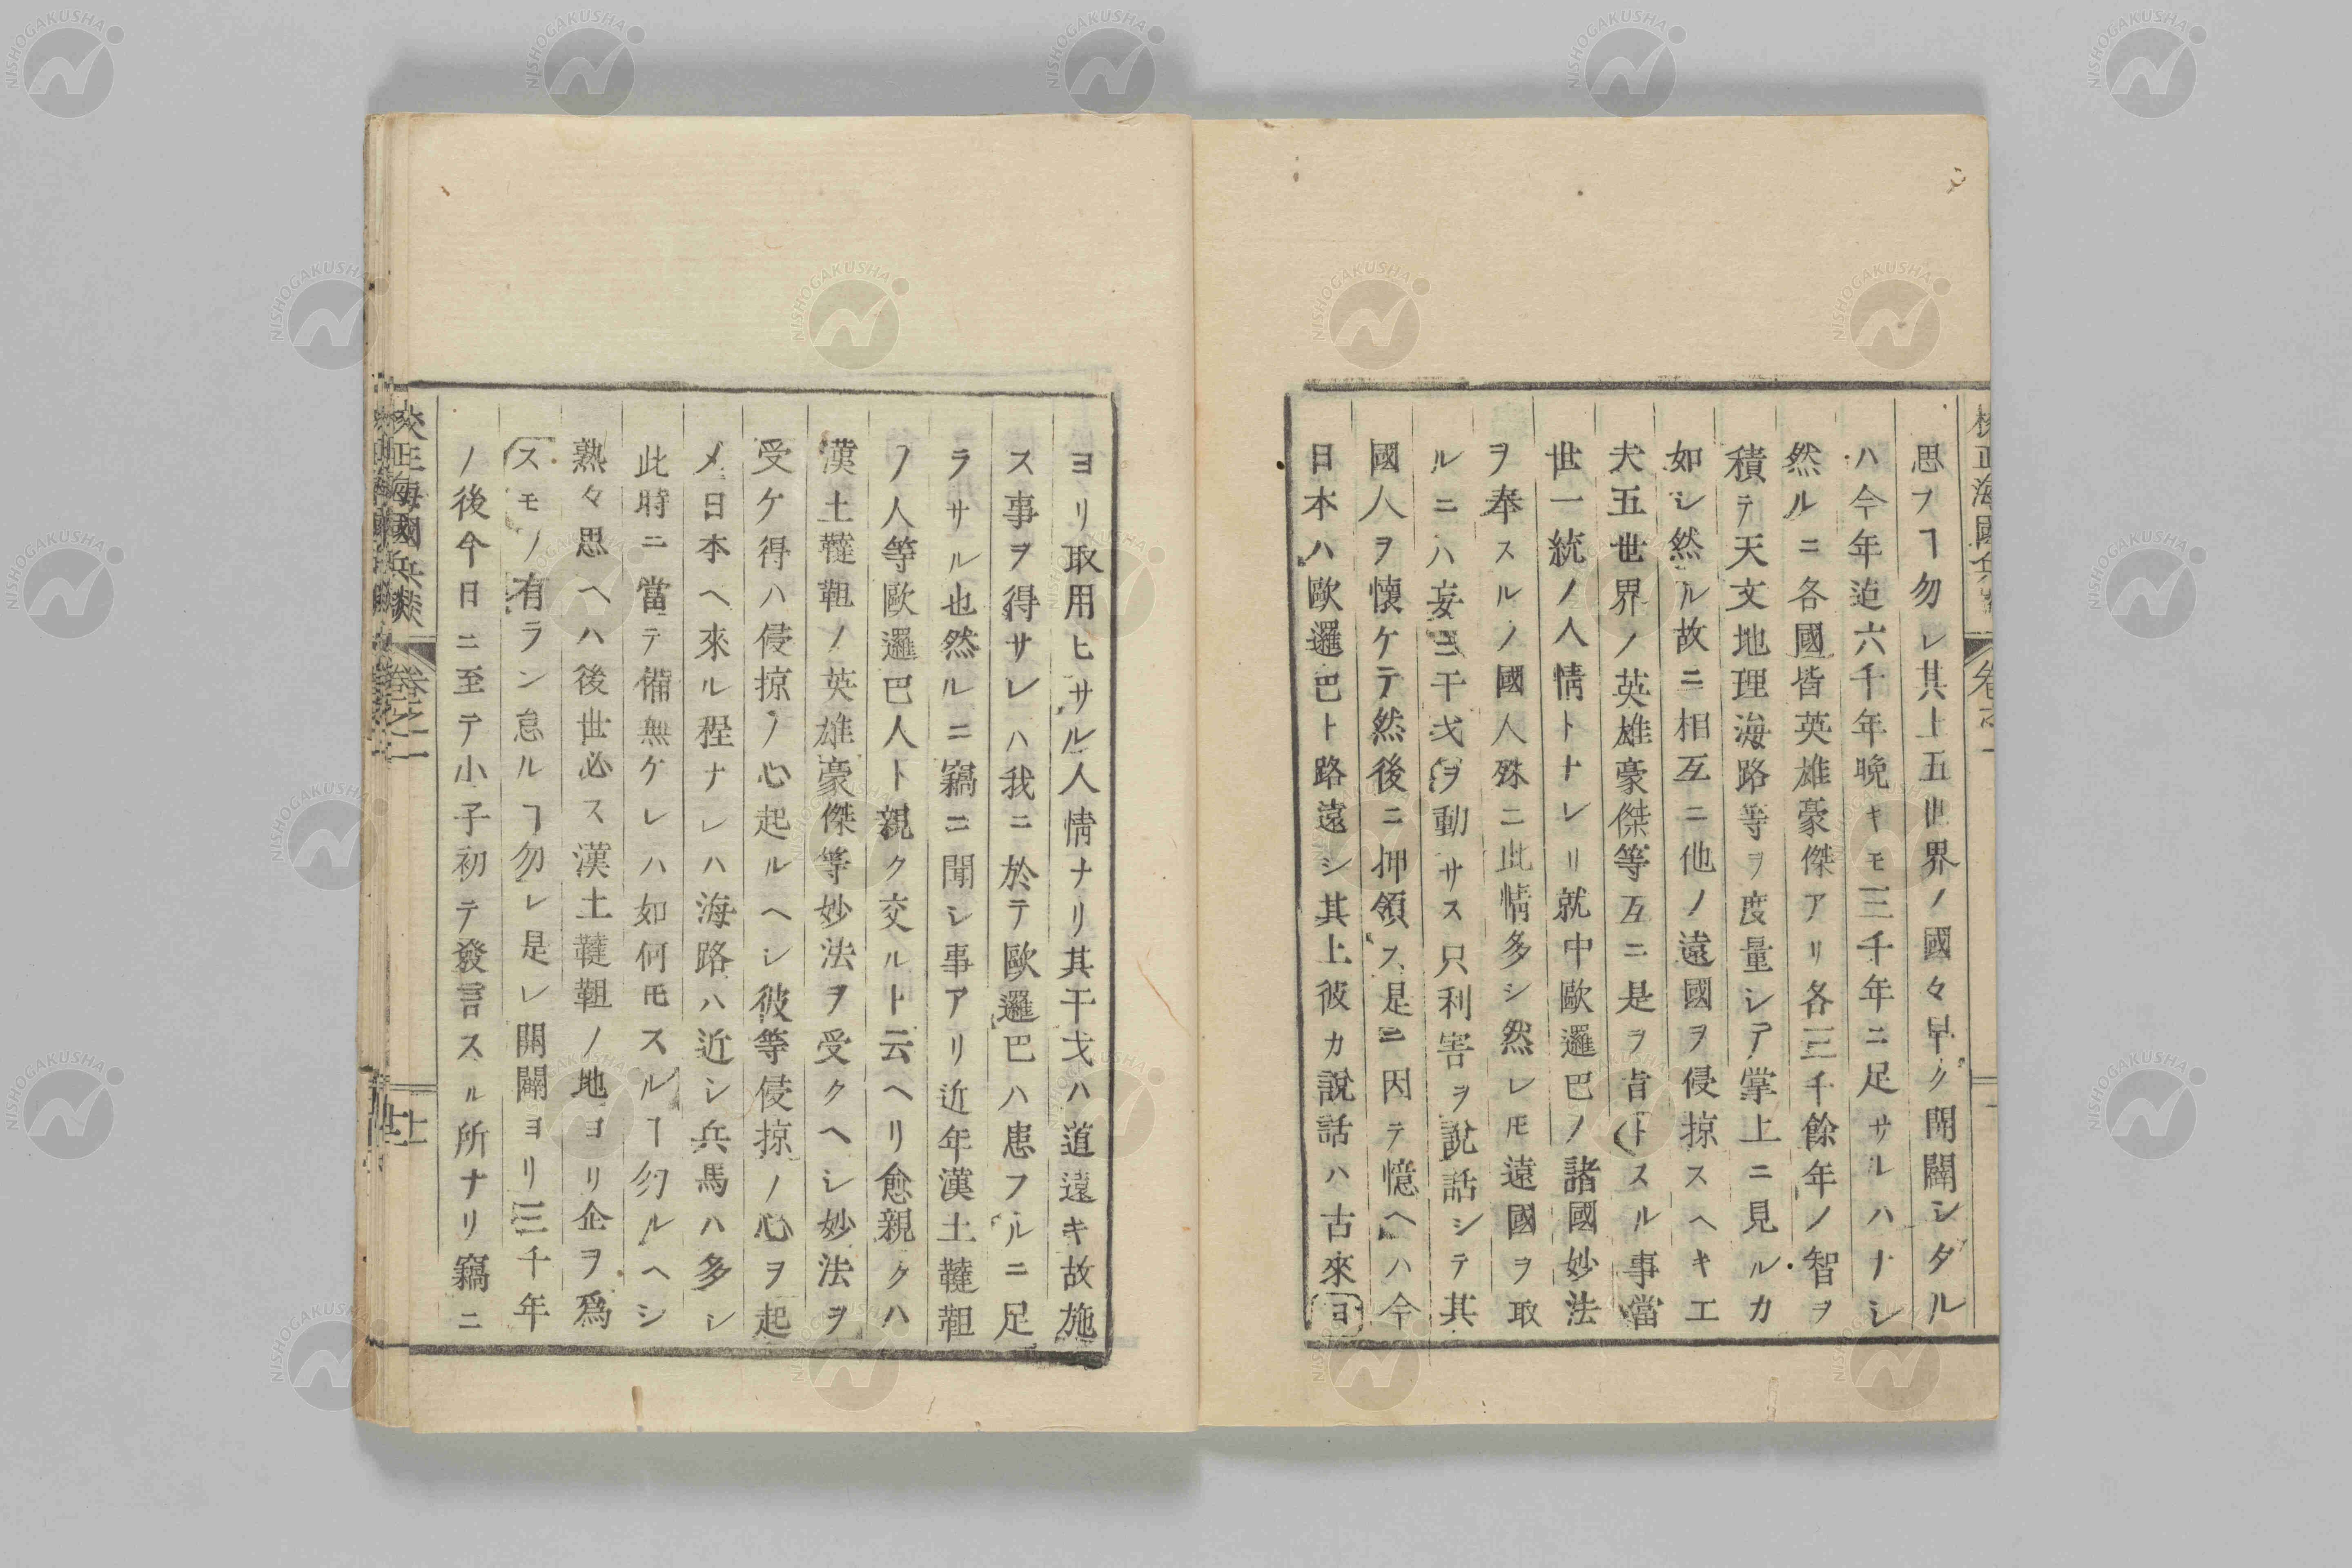 思フヿ勿レ其上五世界ノ國々早ク開闢シタル
ハ今年迠六千年晩キモ三千年ニ足サルハナシ
然ルニ各國皆英雄豪傑アリ各三千餘年ノ智ヲ
積テ天文地理海路等ヲ度量シテ掌上ニ見ルカ
如シ然ル故ニ相互ニ他ノ遠國ヲ侵掠スヘキエ
夫五世界ノ英雄豪傑等互ニ是ヲ旨トスル事當
世一統ノ人情トナレリ就中歐邏巴ノ諸國妙法
ヲ奉スルノ國人殊ニ此情多シ然レ𪜈遠國ヲ取
ルニハ妄ニ干戈ヲ動サス只利害ヲ說話シテ其
國人ヲ懐ケテ然後ニ押領ス是ニ因テ憶ヘハ今
日本ハ歐邏巴ト路遠シ其上彼カ說話ハ古來ヨ
ヨリ取用ヒサル人情ナリ其干戈ハ道遠キ故施
ス事ヲ得サレハ我ニ於テ歐邏巴ハ患フルニ足
ラサル也然ルニ竊ニ聞シ事アリ近年漢土韃靼
ノ人等歐邏巴人ト親ク交ルト云ヘリ愈親クハ
漢土韃靼ノ英雄豪傑等妙法ヲ受クヘシ妙法ヲ
受ケ得ハ侵掠ノ心起ルヘシ彼等侵掠ノ心ヲ起
メ日本ヘ來ル程ナレハ海路ハ近シ兵馬ハ多シ
此時ニ當テ備無ケレハ如何𪜈スルヿ勿ルヘシ
熟々思ヘハ後世必ス漢土韃靼ノ地ヨリ企ヲ爲
スモノ有ラン怠ルヿ勿レ是レ開闢ヨリ三千年
ノ後今日ニ至テ小子初テ發言スル所ナリ竊ニ
校正海國兵談 卷之一